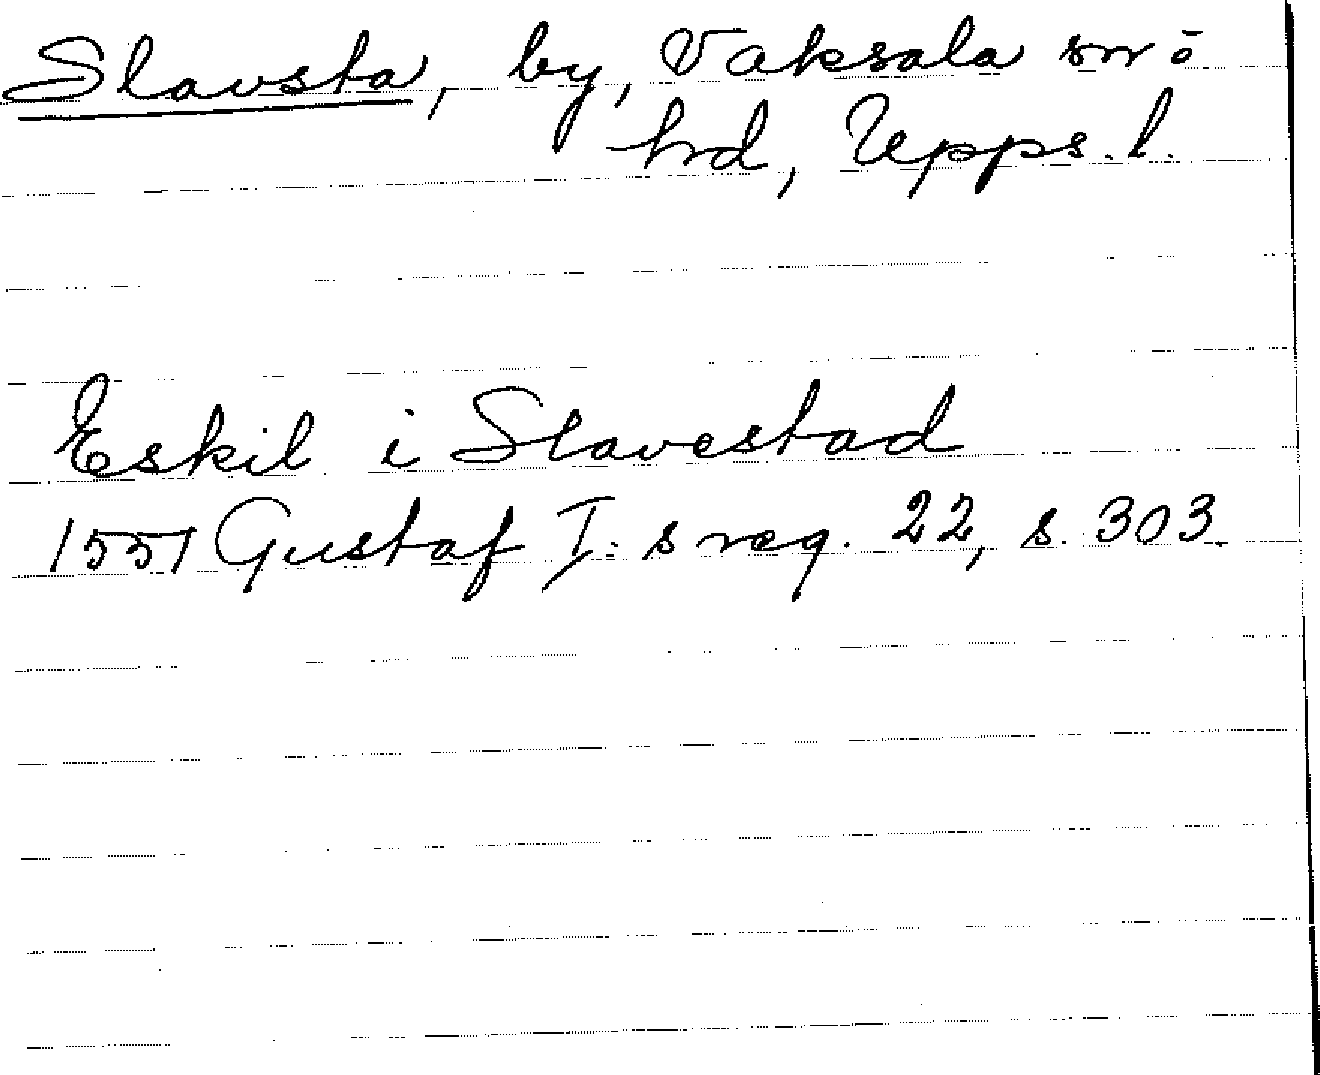 Slavsta, by, Vaksala sn o
hd, Upps. l.
Eskil i Slavestad
1551 Gustaf I:s reg. 22, s. 303.